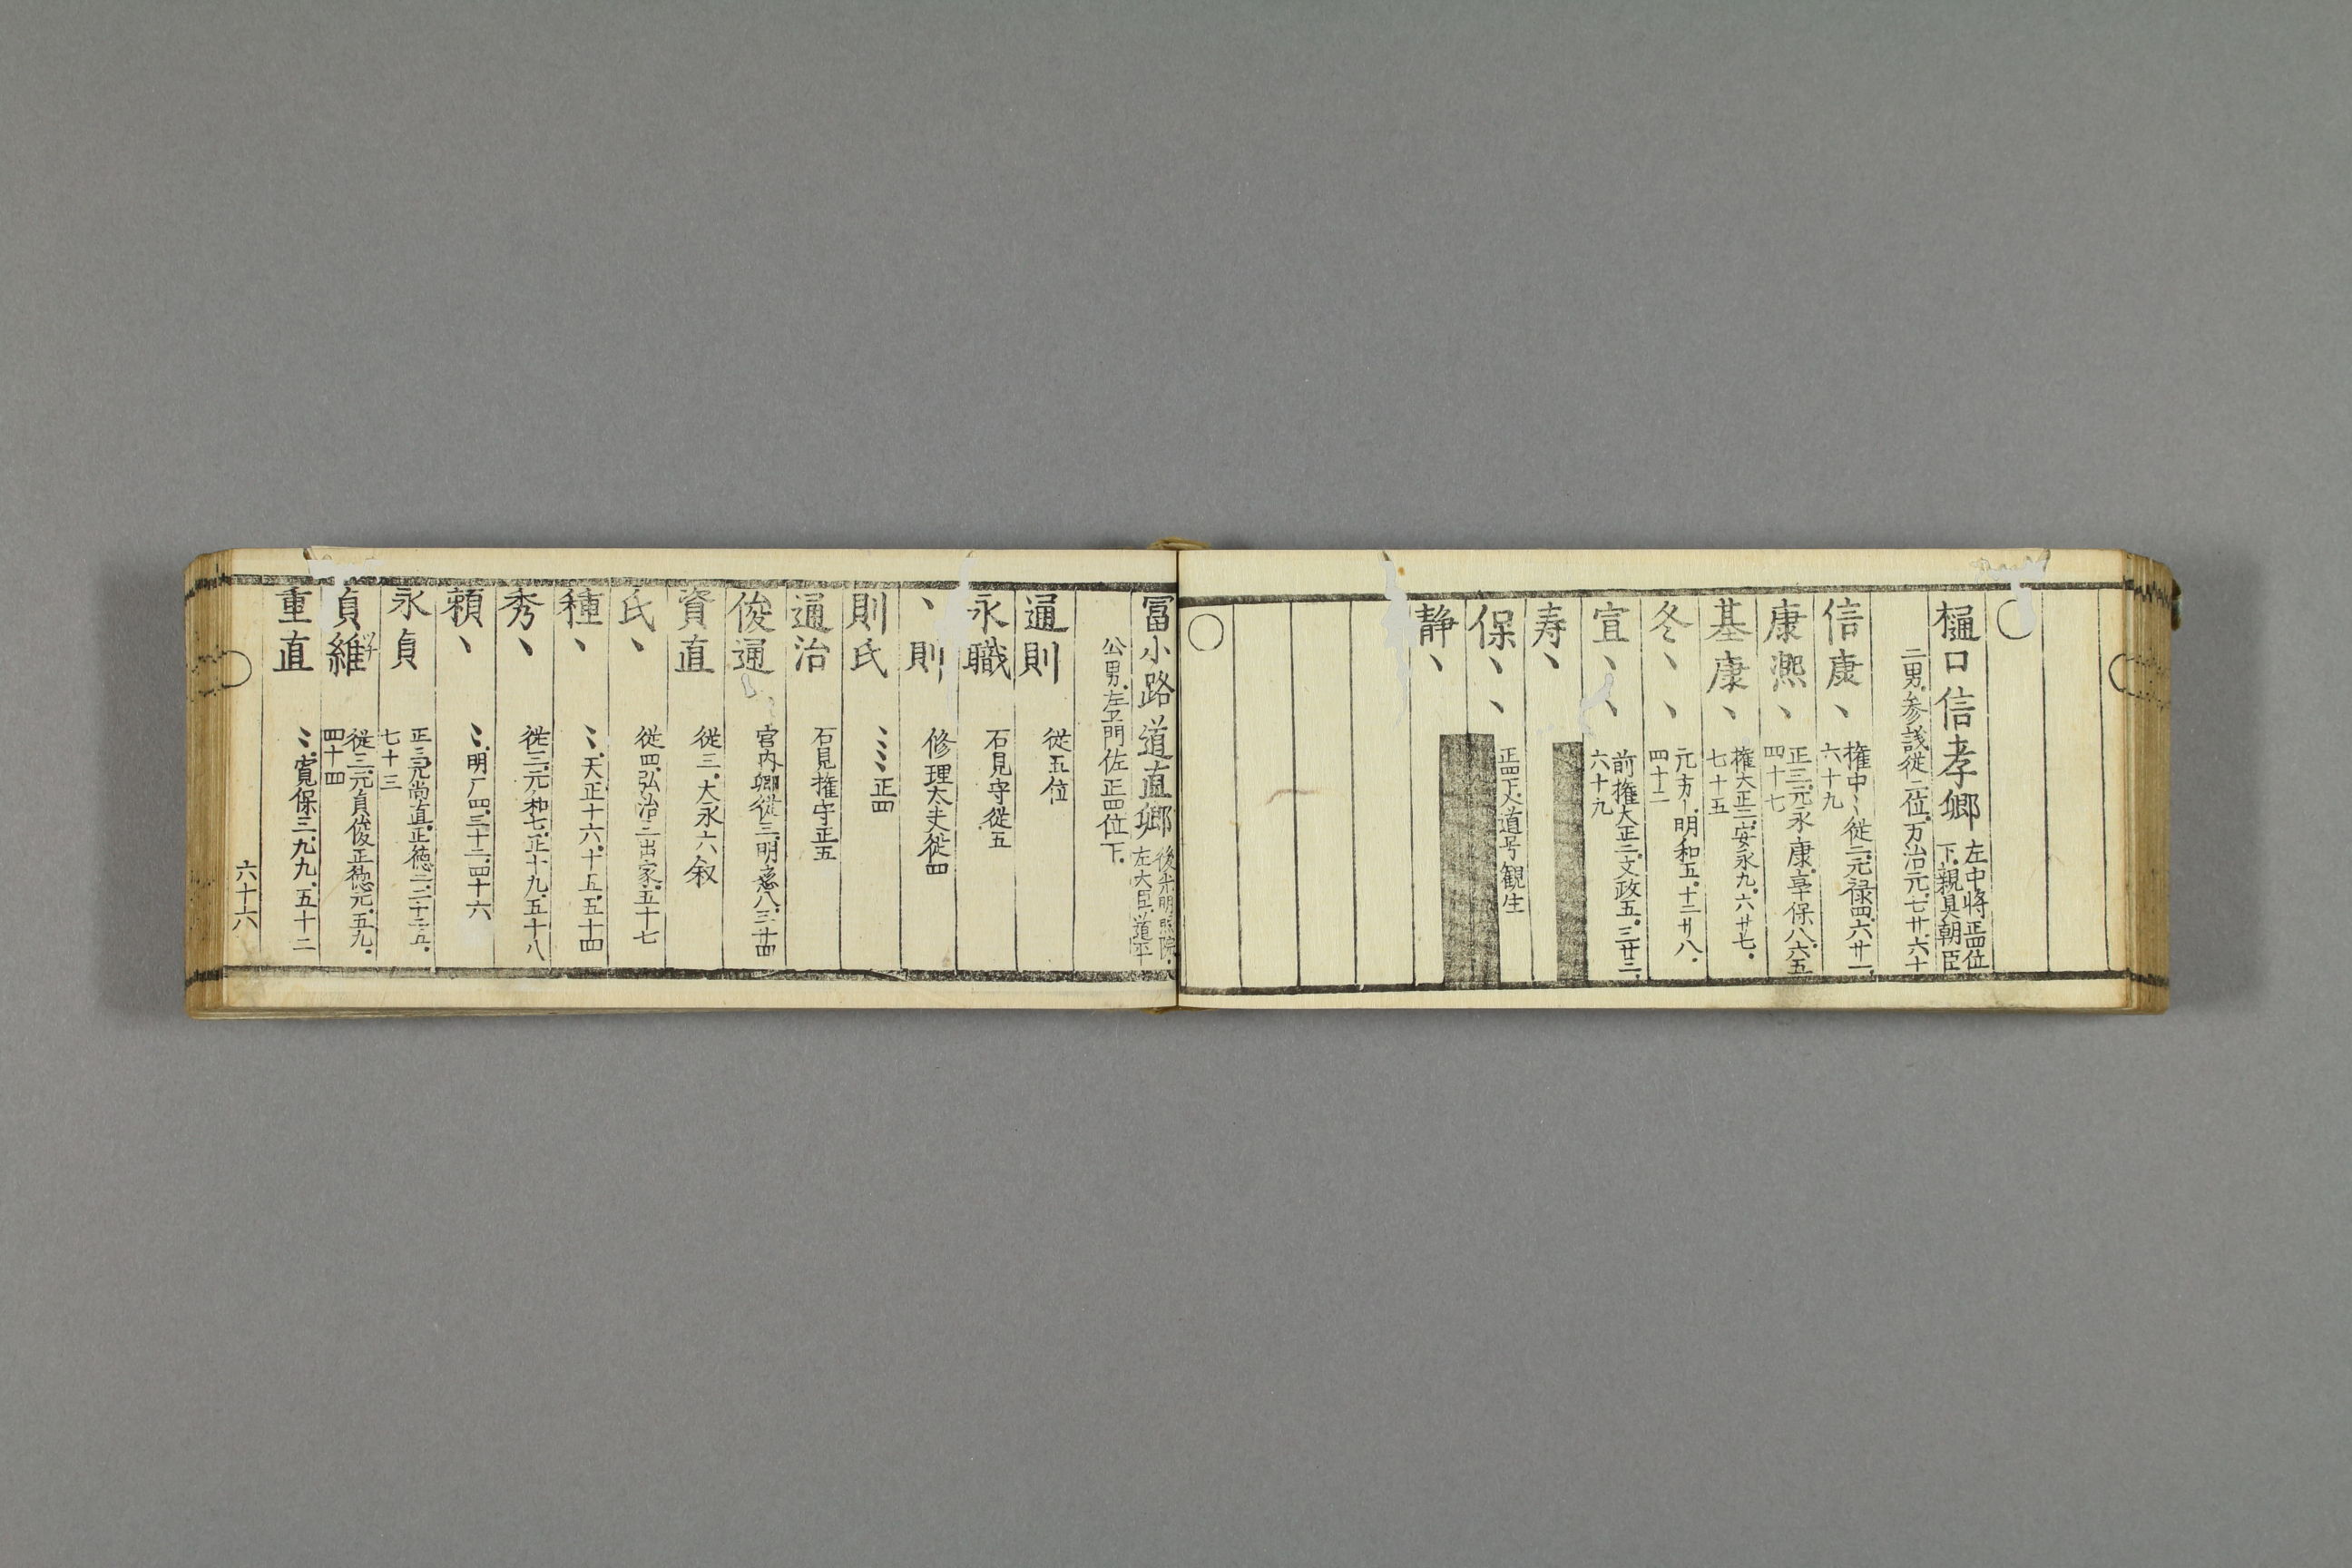 樋口信孝卿 左中将正四位
下親具朝臣
二男参議従二位万治元七廿六十
信康丶 権中〻従二元禄四六廿一
六十九
康熈丶 正三元永康享保八六五
四十七
基康丶 権大正二安永九六廿七
七十五
冬丶丶 元方丨明和五十二廿八
四十二
宜丶丶 前権大正二文政五三廿二
六十九
寿丶
保丶丶 正四下入道号観生
静丶
冨小路道直卿 後光明照院
左大臣道平
公男左卫門佐正四位下
通則 従五位
永職 石見守従五
丶則 修理太夫従四
則氏 〻〻正四
通治 石見権守正五
俊通 宮内卿従三明応八三十四
資直 従三大永六叙
氏丶 従四弘治三出家五十七
種丶 〻天正十六十五五十四
秀丶 従三元和七正十九五十八
頼丶 〻明厂四三十二四十六
永貞 正三元尚直正徳二二十二五
七十三
貞維 従三元貞俊正徳元五九
四十四
重直 〻寛保三九九五十二
六十六